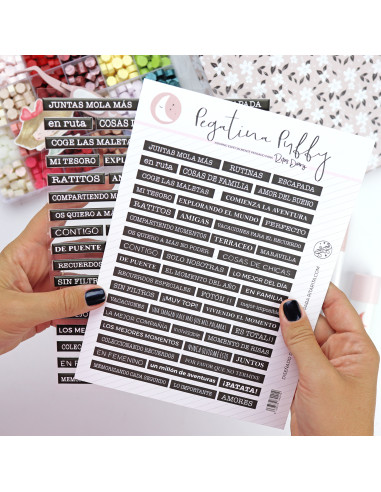 Pegatina Puffy
JUNTAS MOLA MÁS RUTINAS ESCAPADA
en ruta COSAS DE FAMILIA AMOR DEL BUENO
COGE LAS MALETAS COMIENZA LA AVENTURA
MI TESORO EXPLORANDO EL MUNDO PERFECTO
RATITOS AMIGAS VACACIONES PARA EL RECUERDO
COMPARTIENDO MOMENTOS TERRACEO MARAVILLA
OS QUIERO A MÁS NO PODER COSAS DE CHICAS
CONTIGO SOLO NOSOTRAS LO MEJOR DEL DÍA
DE PUENTE EL MOMENTO DEL AÑO EN FAMILIA
RECUERDOS ESPECIALES POTÓN !!
SIN FILTROS ¡MUY TOP! VIVIENDO EL MOMENTO
VACACIONES ES TOTAL!!
LA MEJOR COMPAÑÍA MOMENTO DE RISAS
LOS MEJORES MOMENTOS JUNTOS
COLECCIONANDO RECUERDOS POR FAVOR QUE NO TERMINE
EN FEMENINO un millón de aventuras ¡PATATA!
MEMORIZANDO CADA SEGUNDO LO IMPORTANTE AMORES
JUNTAS MOLA MÁS
en ruta COSAS DE
COGE LAS MALETAS
MI TESORO
RATITOS
COMPARTIENDO M
OS QUIERO A MÁS
CONTIGO
DE PUENTE
RECUERDOS
SIN FILTROS
LOS MEJOR
EN FEM